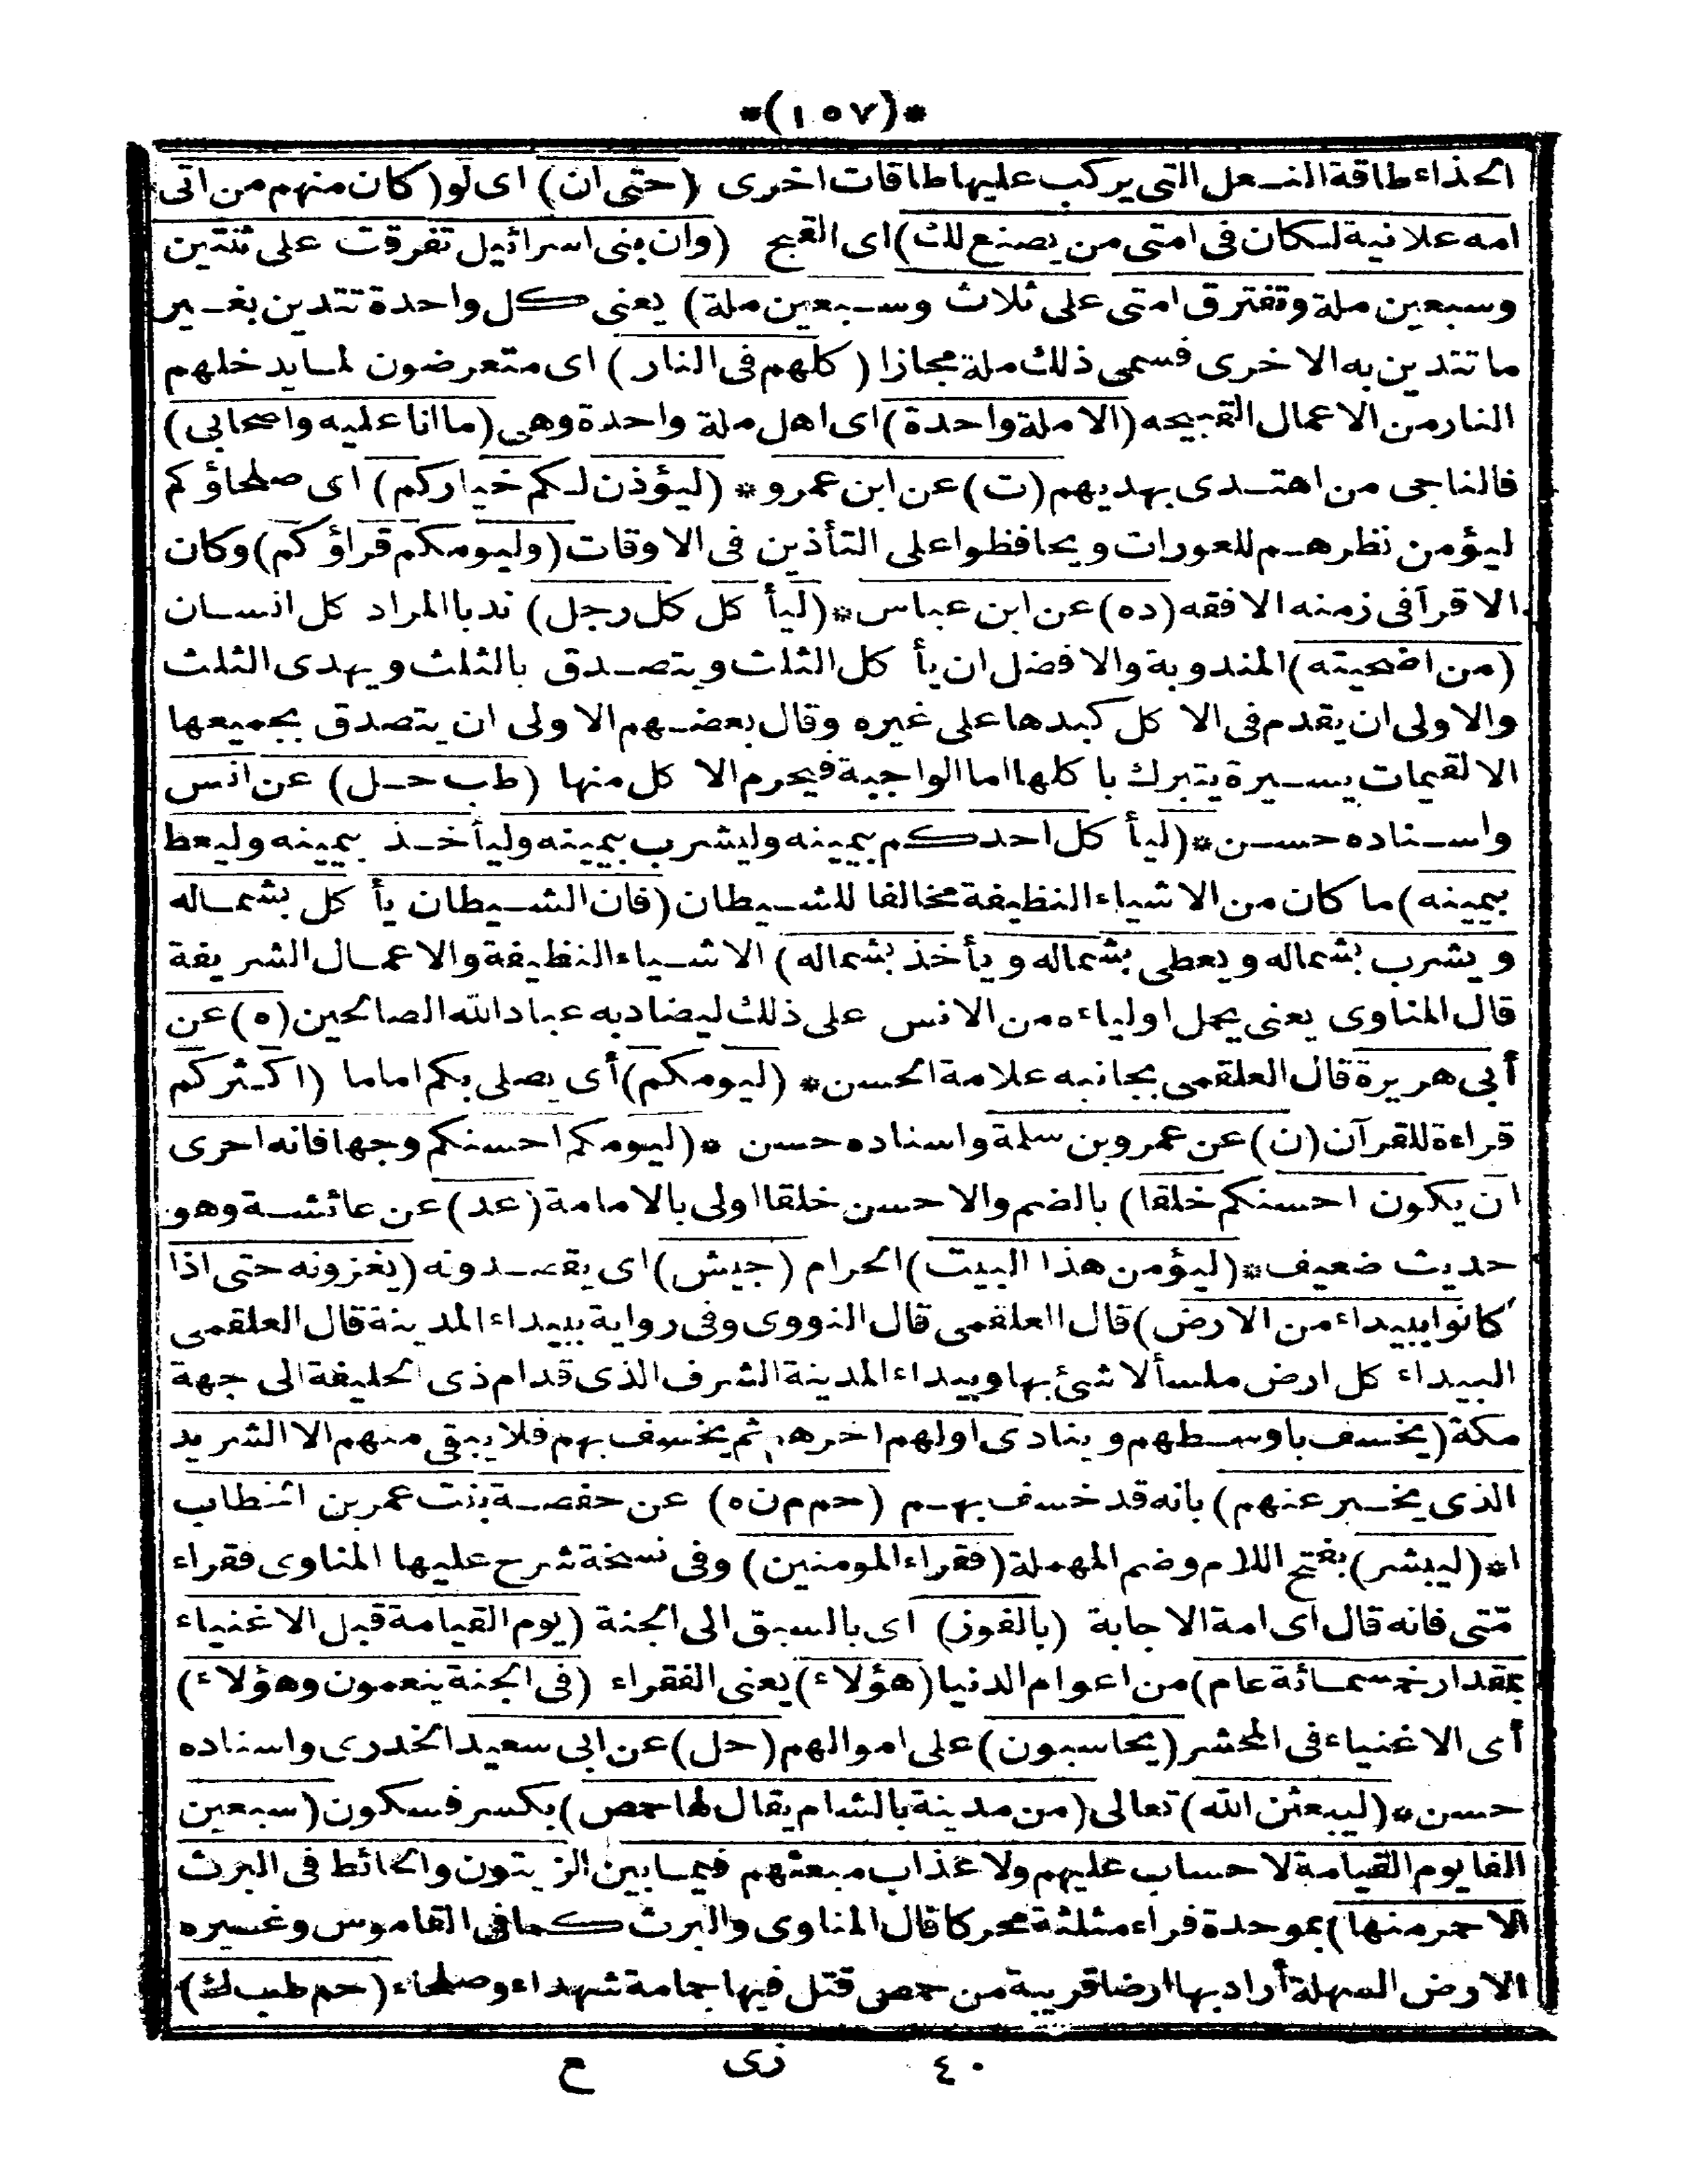 *(١٥٧)*
الحذاء طاقة النعل التى يركب عليها طاقات اخرى (حتى ان) اى لو (كان منهم من اتى
امه علانية لكان فى امتى من يصنع ذلك) اى القبيح (وان بنى اسرائيل تفرقت على ثنتين
وسبعين ملة وتفترق امتى على ثلاث وسبعين ملة) يعنى كل واحدة تتدين بغير
ما تتدين به الاخرى فسمى ذلك ملة مجازا (كلهم فى النار) اى متعرضون لما يدخلهم
النار من الاعمال القبيحه (الا ملة واحدة) اى اهل ملة واحدة وهى (ما انا عليه واصحابى)
فالناجى من اهتدى بهديهم (ت) عن ابن عمرو * (ليؤذن لكم خياركم) اى صلحاؤكم
ليؤمن نظرهم للعورات ويحافظوا على التأذين فى الاوقات (وليومكم قراؤكم) وكان
الاقرأ فى زمنه الافقه (ده) عن ابن عباس * (ليأكل كل رجل) ندبا المراد كل انسان
(من اضحيته) المندوبة والافضل ان يأكل الثلث ويتصدق بالثلث ويهدى الثلث
والاولى ان يقدم فى الاكل كبدها على غيره وقال بعضهم الاولى ان يتصدق بجميعها
الا لقيمات يسيرة يتبرك باكلها اما الواجبة فيحرم الاكل منها (طب حل) عن انس
واسناده حسن * (ليأكل احدكم بيمينه وليشرب بيمينه وليأخذ بيمينه وليعط
بيمينه) ما كان من الاشياء النظيفة مخالفا للشيطان (فان الشيطان يأكل بشماله
ويشرب بشماله ويعطى بشماله ويأخذ بشماله) الاشياء النظيفة والاعمال الشريفة
قال المناوى يعنى يحمل اولياءه من الانس على ذلك ليضاد به عباد الله الصالحين (ه) عن
أبى هريرة قال العلقمى بجانبه علامة الحسن * (ليومكم) أى يصلى بكم اماما (اكثركم
قراءة للقرآن (ن) عن عمرو بن سلمة واسناده حسن * (ليومكم احسنكم وجها فانه احرى
ان يكون احسنكم خلقا) بالضم والاحسن خلقا اولى بالامامة (عد) عن عائشة وهو
حديث ضعيف * (ليؤمن هذا البيت) الحرام (جيش) اى يقصدونه (يغزونه حتى اذا
كانوا ببيداء من الارض) قال العلقمى قال النووى وفى رواية ببيداء المدينة قال العلقمى
البيداء كل ارض ملسأ لا شئ بها وبيداء المدينة الشرف الذى قدام ذى الحليفة الى جهة
مكة (يخسف باوسطهم وينادى اولهم اخرهم ثم يخسف بهم فلا يبقى منهم الا الشريد
الذى يخبر عنهم) بانه قد خسف بهم (حم م ن ه) عن حفصة بنت عمر بن الخطاب
ا * (ليبشر) بفتح اللام وضم المهملة (فقراء المومنين) وفى نسخة شرح عليها المناوى فقراء
متى فانه قال اى امة الاجابة (بالفوز) اى بالسبق الى الجنة (يوم القيامة قبل الاغنياء
بمقدار خمسمائة عام) من اعوام الدنيا (هؤلاء) يعنى الفقراء (فى الجنة ينعمون وهؤلاء)
أى الاغنياء فى المحشر (يحاسبون) على اموالهم (حل) عن ابى سعيد الخدرى واسناده
حسن * (ليبعثن الله) تعالى (من مدينة بالشام يقال لها حمص) بكسر فسكون (سبعين
الفا يوم القيامة لا حساب عليهم ولا عذاب مبعثهم فيما بين الزيتون والحائط فى البرث
الاحمر منها) بموحدة فراء مثلثة محركا قال المناوى والبرث كما فى القاموس وغيره
الارض السهلة أراد بها ارضا قريبة من حمص قتل فيها جمامة شهداء وصلحاء (حم طب ك)
٤٠ زى ع